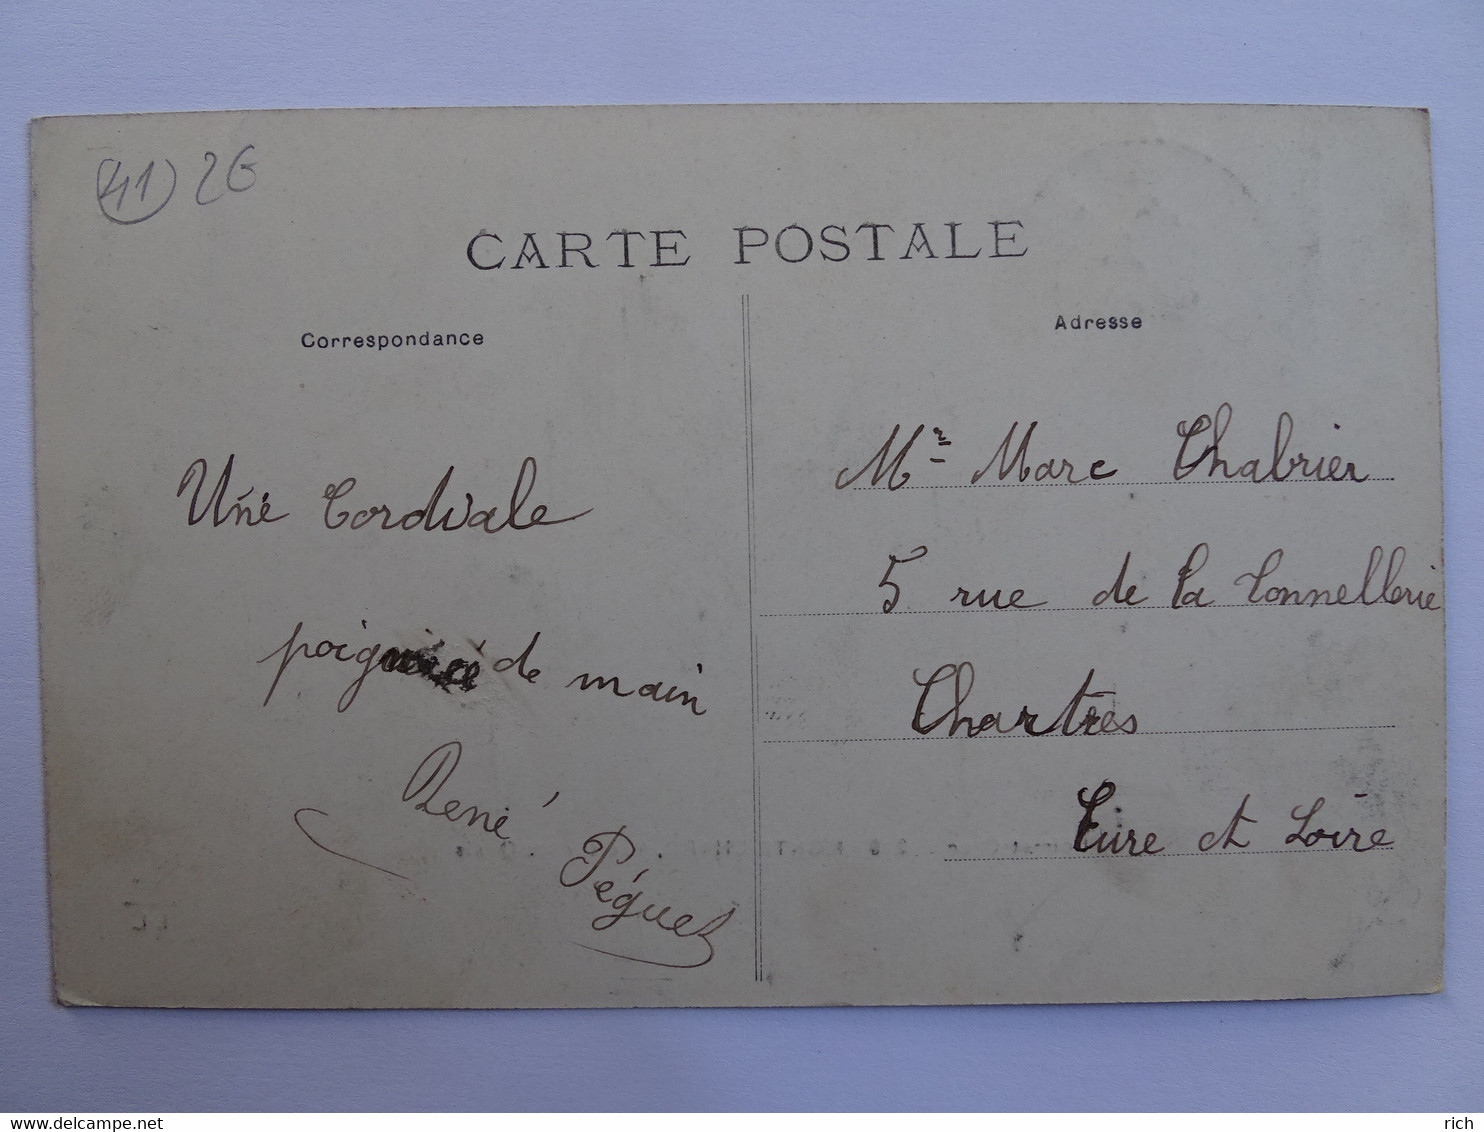 (41) 2€
CARTE POSTALE
Correspondance
Adresse
Une Cordiale
poignée de main
René
Péguet
Mr Marc Chabrier
5 rue de la Tonnellerie
Chartres
Eure et Loire
delcampe.net
rich